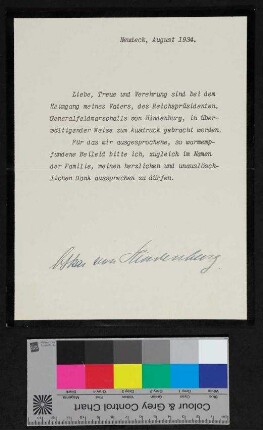 Neudeck, August 1934.
Liebe, Treue und Verehrung sind bei dem
Heimgang meines Vaters, des Reichspräsidenten,
Generalfeldmarschalls von Hindenburg, in über-
wältigender Weise zum Ausdruck gebracht worden.
Für das mir ausgesprochene, so warmemp-
fundene Beileid bitte ich, zugleich im Namen
der Familie, meinen herzlichen und unauslösch-
lichen Dank aussprechen zu dürfen.
Oskar von Hindenburg
Colour & Grey Control Chart